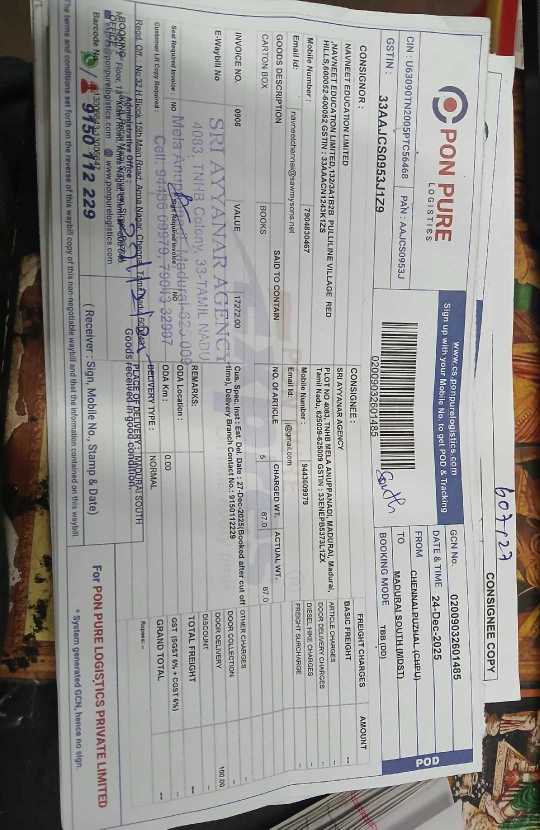 607/27
CONSIGNEE COPY
PON PURE
LOGISTICS
www.cs.ponpurelogistics.com
Sign up with your Mobile No. to get POD & Tracking
POD
CIN : U63090TN2005PTC56468
PAN : AAJCS0953J
GSTIN : 33AAJCS0953J1Z9
02009032601485
South
GCN No. 02009032601485
DATE & TIME 24-Dec-2025
FROM CHENNAI PUZHAL (CHPU)
TO MADURAI SOUTH (MDST)
BOOKING MODE TBB (DD)
CONSIGNOR :
NAVNEET EDUCATION LIMITED
,NAVNEET EDUCATION LIMITED,132/3A1B2B PULLILINE VILLAGE RED
HILLS,600052-600052 GSTIN : 33AAACN1243K1ZS
Mobile Number : 7904830467
Email Id: navneetchennai@sawmysons.net
CONSIGNEE :
SRI AYYANAR AGENCY
PLOT NO 4083, TNHB MELA ANUPPANADI, MADURAI, Madurai,
Tamil Nadu, 625009-625009 GSTIN : 33ENEPB5373L1ZX
Mobile Number : 9443609979
Email Id: @gmail.com
FREIGHT CHARGES AMOUNT
BASIC FREIGHT --
ARTICLE CHARGES
DOOR DELIVERY CHARGES
DIESEL HIKE CHARGES
FREIGHT SURCHARGE
GOODS DESCRIPTION SAID TO CONTAIN NO. OF ARTICLE CHARGED WT. ACTUAL WT.
CARTON BOX BOOKS 5 87.0 87.0
INVOICE NO. 0906 VALUE 17272.00
E-Waybill No
Cus. Spec. Inst.: Est. Del. Date : 27-Dec-2025(Booked after cut off
time), Delivery Branch Contact No.: 9150112229
OTHER CHARGES
DOOR COLLECTION
DOOR DELIVERY 150.00
DISCOUNT
TOTAL FREIGHT --
GST (SGST 6% + CGST 6%)
GRAND TOTAL --
Rupees --
SRI AYYANAR AGENCY
4083, TNHB Colony, 33-TAMIL NADU
REMARKS:
Seal Required Invoice : NO
Sign Required Invoice NO
ODA Location :
Customer LR Copy Required :
ODA Km : 0.00
DELIVERY TYPE : NORMAL
PLACE OF DELIVERY : MADURAI SOUTH
Goods received in good condition
Administrative Office :
www.ponpurelogistics.com
Barcode No.
9150 112 229
( Receiver : Sign, Mobile No., Stamp & Date)
For PON PURE LOGISTICS PRIVATE LIMITED
* System generated GCN, hence no sign.
The terms and conditions set forth on the reverse of this waybill copy of this non-negotiable waybill and that the information contained on this waybill